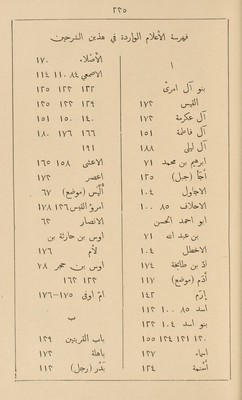 ٢٢٥
فهرسة الأعلام الواردة في هذين الشرحين
ا
بنو آل امرئ
القيس ١٧٢
آل عكرمة ١٧٢
آل فاطمة ١٥١
آل ليلى ١٨٨
ابرهيم بن محمد ٧١
أجأ (جبل) ١٢٥
الاجاول ١٠٤
الاحلاف ٨٥ ١٠٠
ابو احمد الحسن
بن عبد الله ٧١
الاخطل ١٠٤
ادّ بن طابخة ١٧٤
أدَم (موضع) ١١٧
إرَم ١٤٢
اسد ٨٥ ١٠٠ ١١٢
بنو اسد ١٠٤ ١٢٢
١٣٠ ١٣١ ١٣٤ ١٥٥
اسماء ١٢٧
أسنمة ١٢٤
الأصلاء ١٧٠
الاصمعي ٨٤ ١١٠ ١١٤
١٢٢ ١٢٣ ١٢٥
١٢٩ ١٣٣ ١٣٥
١٤٠ ١٥٠ ١٥١
١٦٦ ١٧٦ ١٨٠
١٩١
الاعشى ١٥٨ ١٦٥
اعصر ١٧٢
أُلَّيس (موضع) ٦٧
امرؤ القيس ١٢٦ ١٧٨
الانصار ٦٢
اوس بن حارثة بن
لأم ١٧٦
اوس بن حجر ٧٨
١٢٢ ١٦٢
ام اوفى ١٧٥–١٧٦
ب
باب القريتين ١٢٩
باهلة ١٧٢
بَدْر (رجل) ١١٢